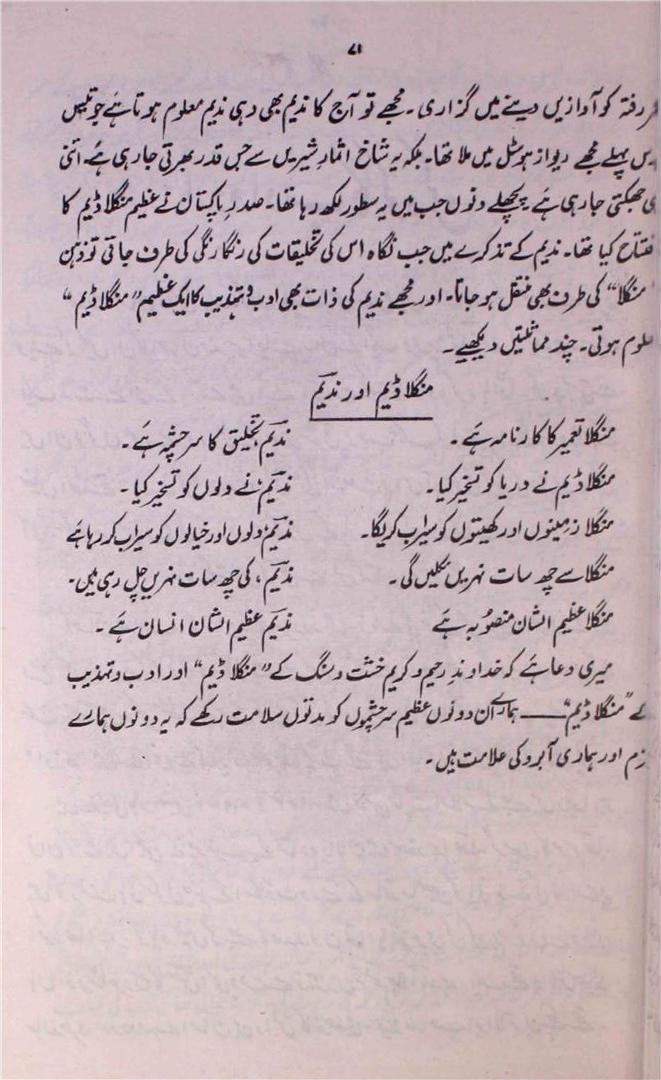 ۷۱
رفتہ کو آوازیں دینے میں گزاری۔ مجھے تو آج کا ندیم بھی وہی ندیم معلوم ہوتا ہے جو تیس
پہلے مجھے ریواز ہوسٹل میں ملا تھا۔ بلکہ یہ شاخ اثمارِ شیریں سے جس قدر بھرتی جا رہی ہے۔ اتنی
جھکتی جا رہی ہے پچھلے دنوں جب میں یہ سطور لکھ رہا تھا۔ صدرِ پاکستان نے عظیم منگلا ڈیم کا
کیا تھا۔ ندیم کے تذکرے میں جب نگاہ اس کی تخلیقات کی رنگا رنگی کی طرف جاتی تو ذہن
منگلا“ کی طرف بھی منتقل ہو جاتا۔ اور مجھے ندیم کی ذات بھی ادب و تہذیب کا ایک عظیم ”منگلا ڈیم“
ہوتی۔ چند مماثلتیں دیکھیے۔
منگلا ڈیم اور ندیم
منگلا تعمیر کا کارنامہ ہے۔ ندیم تخلیق کا سرچشمہ ہے۔
منگلا ڈیم نے دریا کو تسخیر کیا۔ ندیم نے دلوں کو تسخیر کیا۔
منگلا زمینوں اور کھیتوں کو سیراب کریگا۔ ندیم دلوں اور خیالوں کو سیراب کر رہا ہے
منگلا سے چھ سات نہریں نکلیں گی۔ ندیم، کی چھ سات نہریں چل رہی ہیں۔
منگلا عظیم الشان منصوبہ ہے ندیم عظیم الشان انسان ہے۔
میری دعا ہے کہ خداوندِ رحیم و کریم خشت و سنگ کے ”منگلا ڈیم“ اور ادب و تہذیب
کے ”منگلا ڈیم“ــــ ہمارے ان دونوں عظیم سرچشموں کو مدتوں سلامت رکھے کہ یہ دونوں ہمارے
اور ہماری آبرو کی علامت ہیں۔